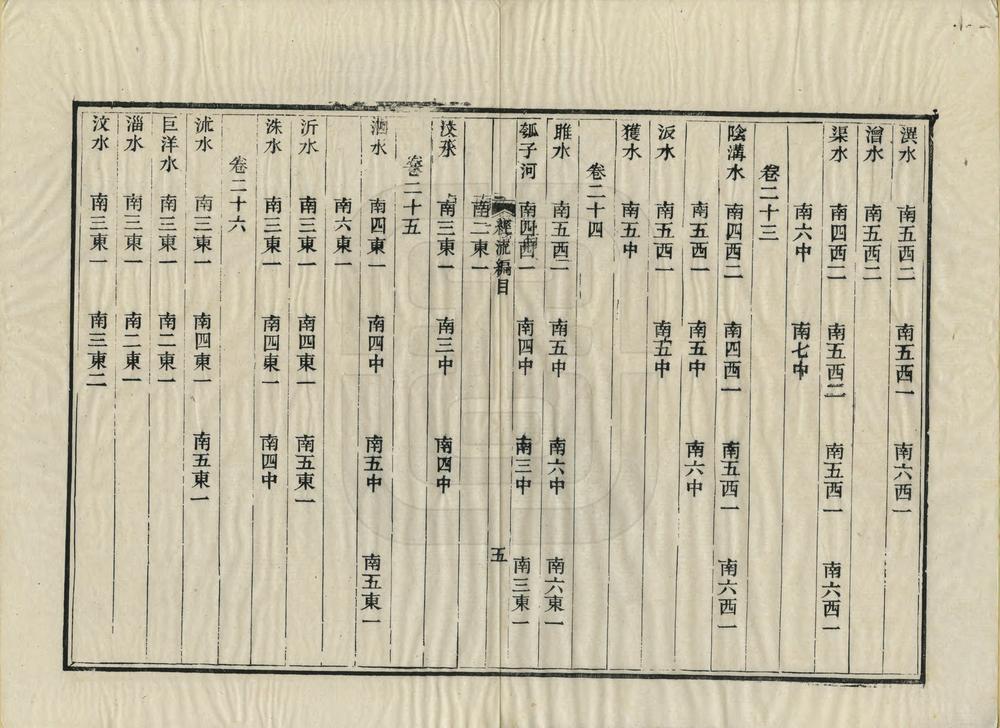 潩水　南五西二　南五西一　南六西一
潧水　南五西二
渠水　南四西二　南五西二　南五西一　南六西一
南六中　南七中
卷二十三
陰溝水　南四西二　南四西一　南五西一　南六西一
南五西一　南五中　南六中
汳水　南五西一　南五中
獲水　南五中
卷二十四
睢水　南五西一　南五中　南六中　南六東一
瓠子河　南四西一　南四中　南三中　南三東一
經流編目
五
南二東一
汶水　南三東一　南三中　南四中
卷二十五
泗水　南四東一　南四中　南五中　南五東一
南六東一
沂水　南三東一　南四東一　南五東一
洙水　南三東一　南四東一　南四中
卷二十六
沭水　南三東一　南四東一　南五東一
巨洋水　南三東一　南二東一
淄水　南三東一　南二東一
汶水　南三東一　南三東二